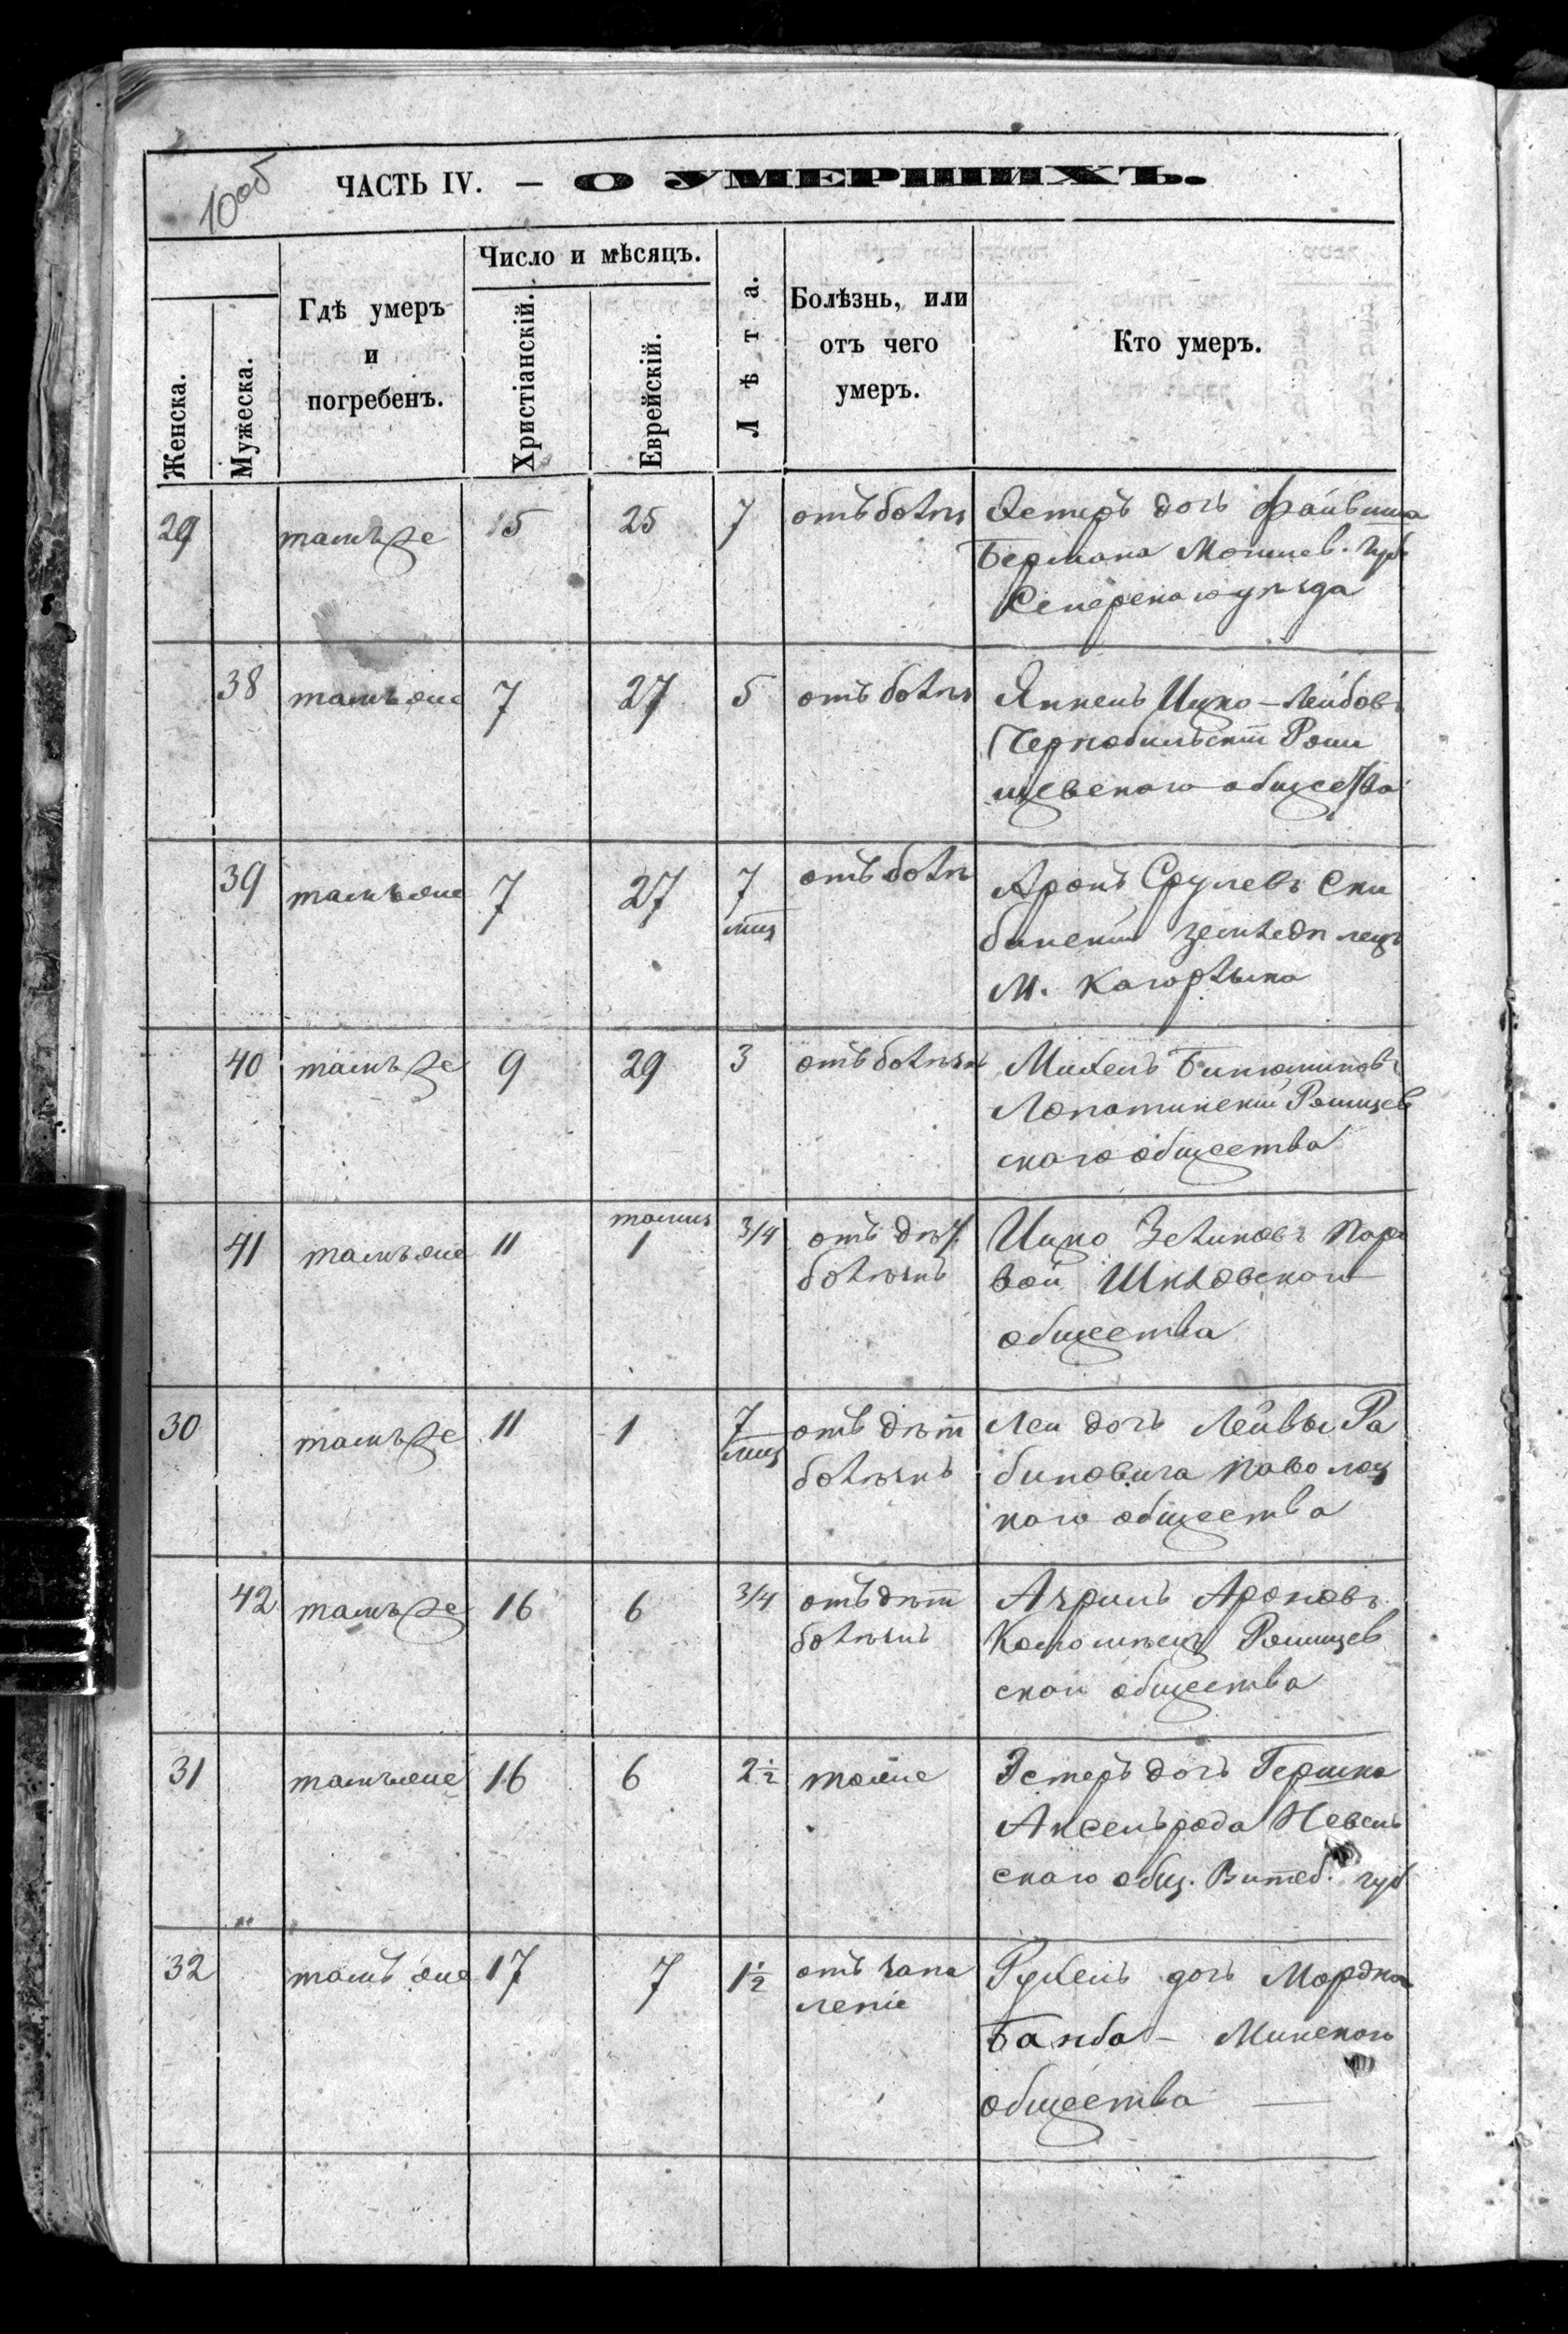 10об
ЧАСТЬ IV. — О УМЕРШИХЪ.
Женска.
Мужеска.
Гдѣ умеръ
и
погребенъ.
Число и мѣсяцъ.
Христіанскій.
Еврейскій.
Лѣта.
Болѣзнь, или
отъ чего
умеръ.
Кто умеръ.
29 тамъ же 15 25 7 отъ болѣз Эстеръ дочь Файвиша
Бермана Могилев. губ
уѣзда
38 тамъ же 7 27 5 отъ болѣз Янкель Ицко-Лейбовъ
Рэши
щевскаго общества
39 тамъ же 7 27 7 мѣц отъ болѣз Аронъ Срулевъ Ски
бинскій земледѣлецъ
М. Кагорлыка
40 тамъ же 9 29 3 отъ болѣзн Михель Бинюминовъ
Лопатинскій Ромищев
скаго общества
41 тамъ же 11 тамиз 1 3/4 отъ дѣт.
болѣзнь
Ицко Зеликовъ
вой Шкловскаго
общества
30 тамъ же 11 1 7 мѣц отъ дѣт
болѣзнь
Леи дочь Лейвы Ра
биновича Паволоц
каго общества
42 тамъ же 16 6 3/4 отъ дѣт
болѣзнь
Азриль Ароновъ
Коломѣецъ Ромищев
ской общества
31 тамъ же 16 6 2½ тоже Эстеръ дочь Гершка
Аксельрода Невель
скаго общ. Витеб. губ
32 тамъ же 17 7 1½ отъ запа
леніе
Рухель дочь Мордка
Банба - Минскаго
общества —